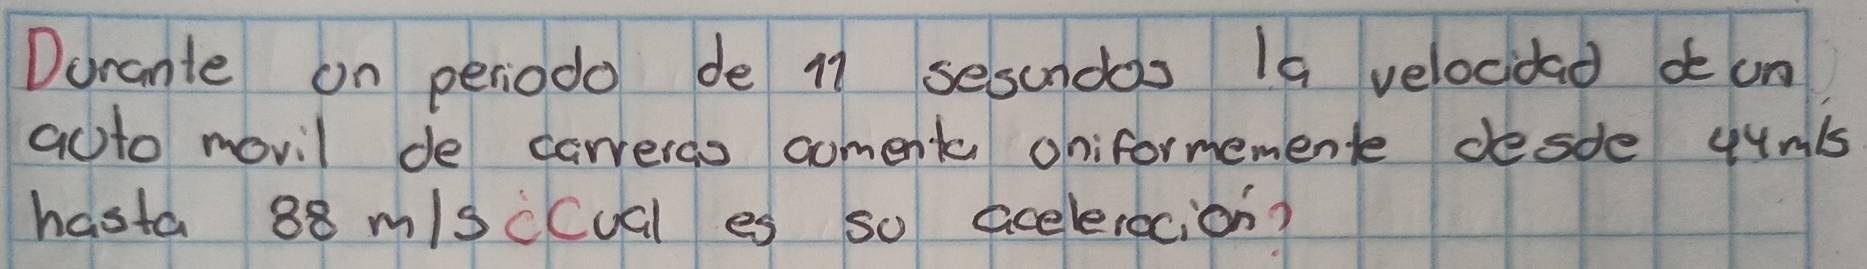 Durante un periodo de 11 segundos la velocidad de un
auto movil de carreras aumenta uniformemente desde 44m/s
hasta 88 m/s ¿Cual es su aceleración?